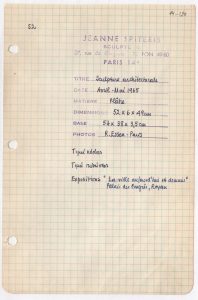 52
JEANNE SPITERIS
SCULPTEUR
PARIS 14e
TITRE Sculpture architecturale
DATE Avril-Mai 1965
MATIERE Plâtre
DIMENSIONS 52 x 6 x 49 cm
BASE 54 x 38 x 3,5 cm
PHOTOS R. Essen - Paris
Expositions "La ville aujourd'hui et demain"
Palais du Congrès, Royan